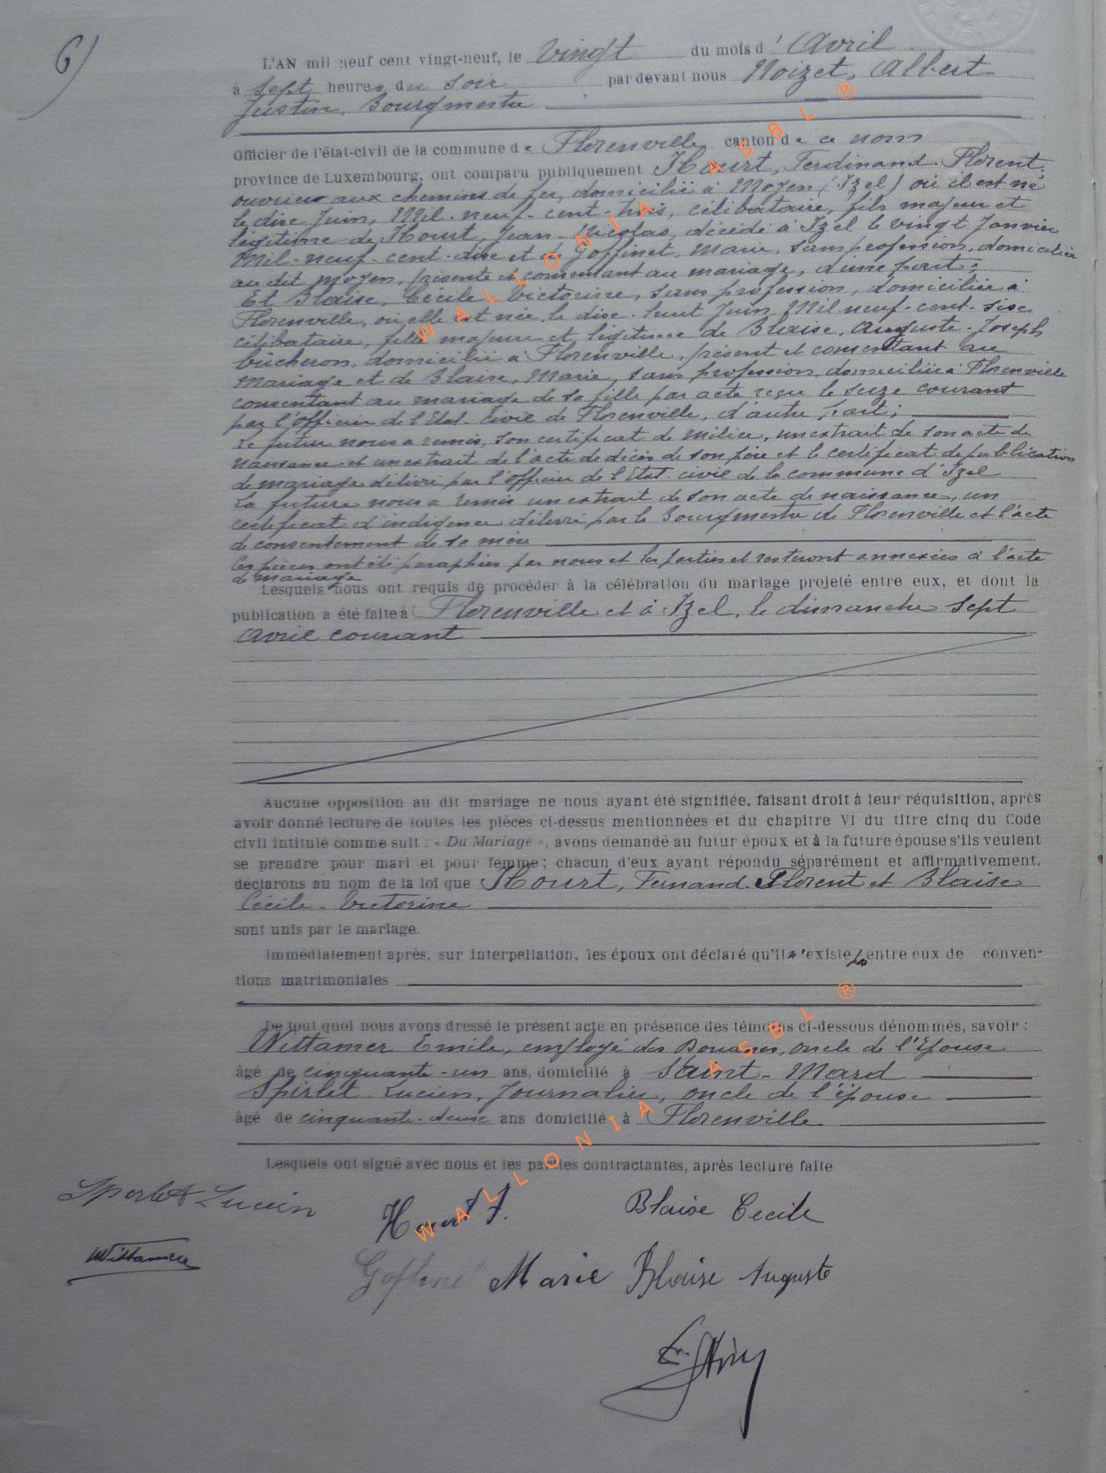 6)
L'AN mil neuf cent vingt-neuf, le vingt du mois d'Avril
à sept heures du soir par devant nous Noizet, Albert
Justin, Bourgmestre
Officier de l'état-civil de la commune de Florenville canton de ce nom
province de Luxembourg, ont comparu publiquement Hourt, Ferdinand-Florent,
ouvrier aux chemins de fer, domicilié à Moyen (Izel) où il est né
le dix Juin, Mil-neuf-cent-trois, célibataire, fils majeur et
légitime de Hourt, Jean-Nicolas, décédé à Izel le vingt Janvier
Mil-neuf-cent-dix et de Goffinet, Marie, sans profession, domiciliée
au dit Moyen, présente et consentant au mariage, d'une part;
Et Blaise, Cécile Victorine, sans profession, domiciliée à
Florenville, où elle est née le dix-huit Juin Mil neuf-cent-six
célibataire, fille majeure et légitime de Blaise, Auguste-Joseph
bûcheron, domicilié à Florenville, présent et consentant au
Mariage et de Blaise, Marie, sans profession, domiciliée à Florenville
consentant au mariage de sa fille par acte reçu le seize courant
par l'officier de l'Etat-civil de Florenville, d'autre part;
Le futur nous a remis, son certificat de milice, un extrait de son acte de
naissance et un extrait de l'acte de décès de son père et le certificat de publication
de mariage délivré par l'officier de l'Etat-civil de la commune d'Izel
La future nous a remis un extrait de son acte de naissance, un
certificat d'indigence délivré par le Bourgmestre de Florenville et l'acte
de consentement de sa mère
Ces pièces ont été paraphées par nous et les parties et resteront annexées à l'acte
de mariage
Lesquels nous ont requis de procéder à la célébration du mariage projeté entre eux, et dont la
publication a été faite à Florenville et à Izel, le dimanche sept
avril courant
Aucune opposition au dit mariage ne nous ayant été signifiée, faisant droit à leur réquisition, après
avoir donné lecture de toutes les pièces ci-dessus mentionnées et du chapitre VI du titre cinq du Code
civil intitulé comme suit : « Du Mariage », avons demandé au futur époux et à la future épouse s'ils veulent
se prendre pour mari et pour femme ; chacun d'eux ayant répondu séparément et affirmativement,
déclarons au nom de la loi que Hourt, Fernand-Florent et Blaise
Cécile-Victorine
sont unis par le mariage.
Immédiatement après, sur interpellation, les époux ont déclaré qu'il n'existe pas entre eux de conven-
tions matrimoniales
De tout quoi nous avons dressé le présent acte en présence des témoins ci-dessous dénommés, savoir :
Wittamer Emile, employé des Douanes, oncle de l'Epouse
âgé de cinquante-un ans, domicilié à Saint-Mard
Spirlet Lucien, Journalier, oncle de l'épouse
âgé de cinquante-deux ans domicilié à Florenville
Lesquels ont signé avec nous et les parties contractantes, après lecture faite
Spirlet Lucien Hourt F. Blaise Cecile
Wittamer Goffinet Marie Blaise Auguste
WALLONIA ASBL ®
WALLONIA ASBL ®